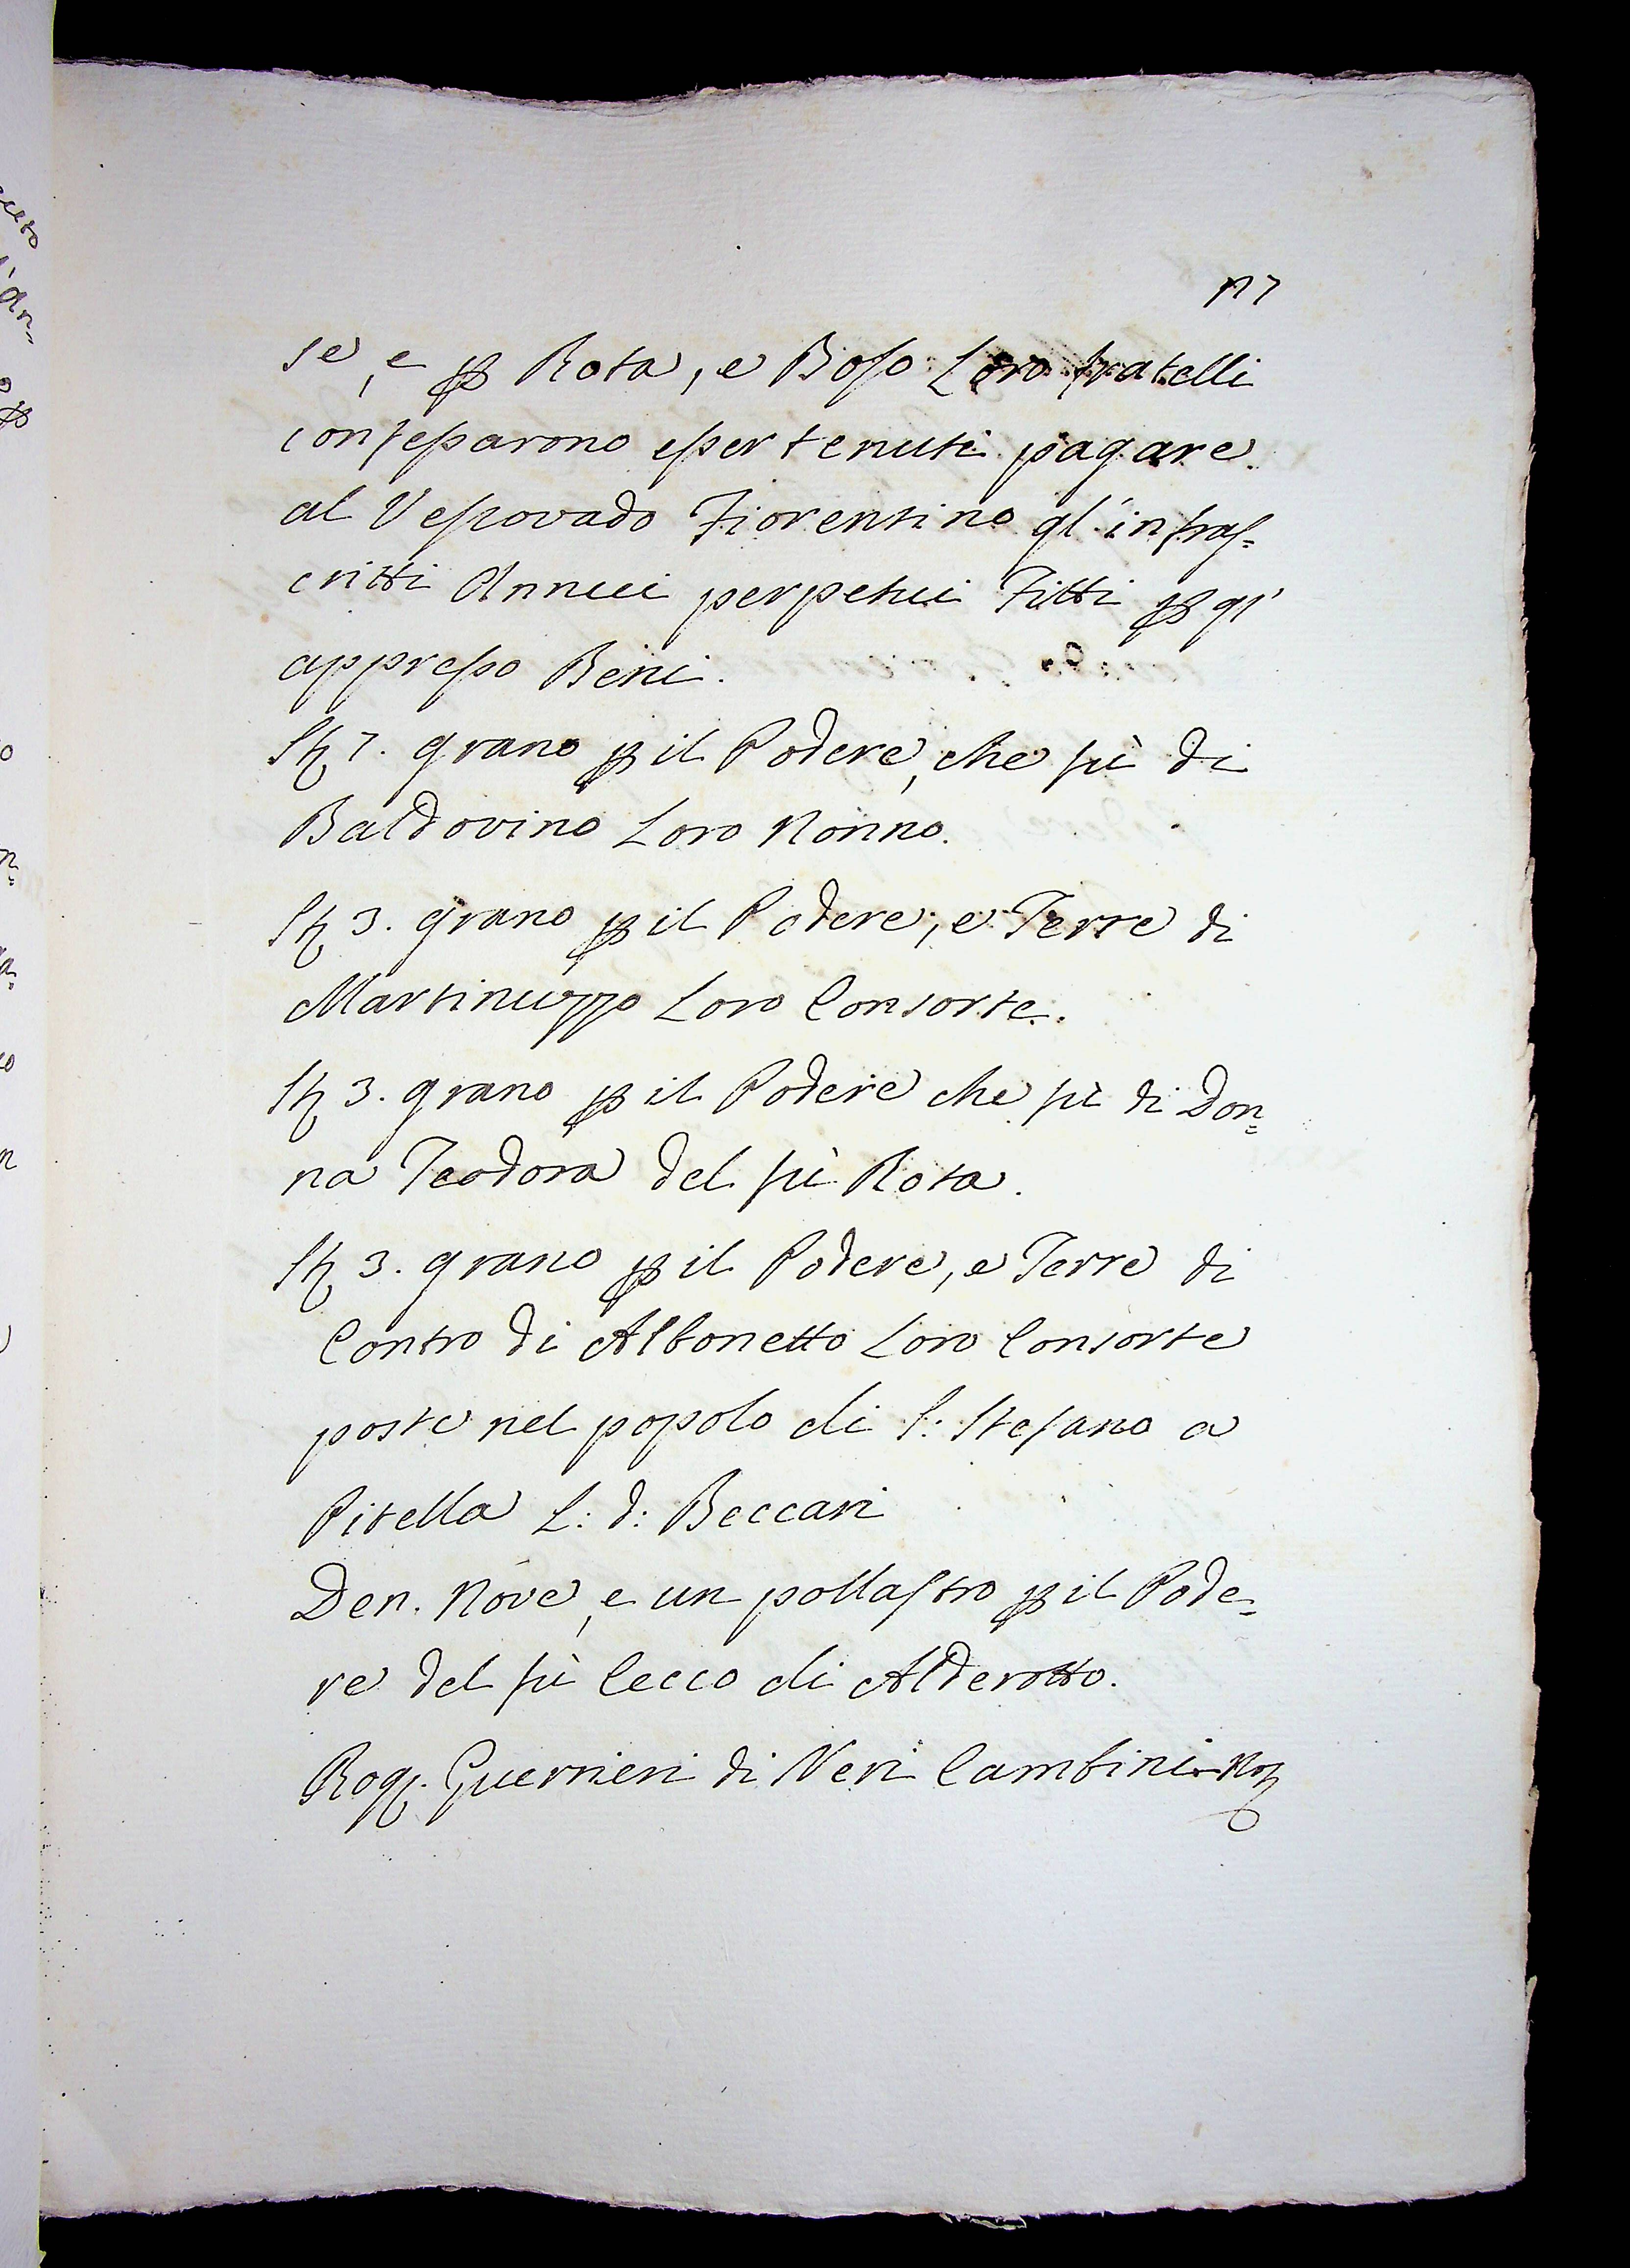 se, e ꝑ Rota, e Boso Loro fratelli
confessarono esser tenuti pagare
al Vescovado Fiorentino gl'infras=
critti Annui perpetui Fitti ꝑ gl'
appresso Beni.
St 7. grano ꝑ il Podere, che fù di
Baldovino Loro Nonno.
St 3. grano ꝑ il Podere, e Terre di
Martinuzzo Loro Consorte.
St 3. grano ꝑ il Podere che fù di Don=
na Teodora del fù Rota.
St 3. grano ꝑ il Podere, e Terre di
Contro di Albonetto Loro Consorte
poste nel popolo di S: Stefano a
Pitella L: d: Beccari
Den. Nove, e un pollastro ꝑ il Pode=
re del fù Cecco di Alderotto.
Rogỹ. Guernieri di Neri Cambini Nоt